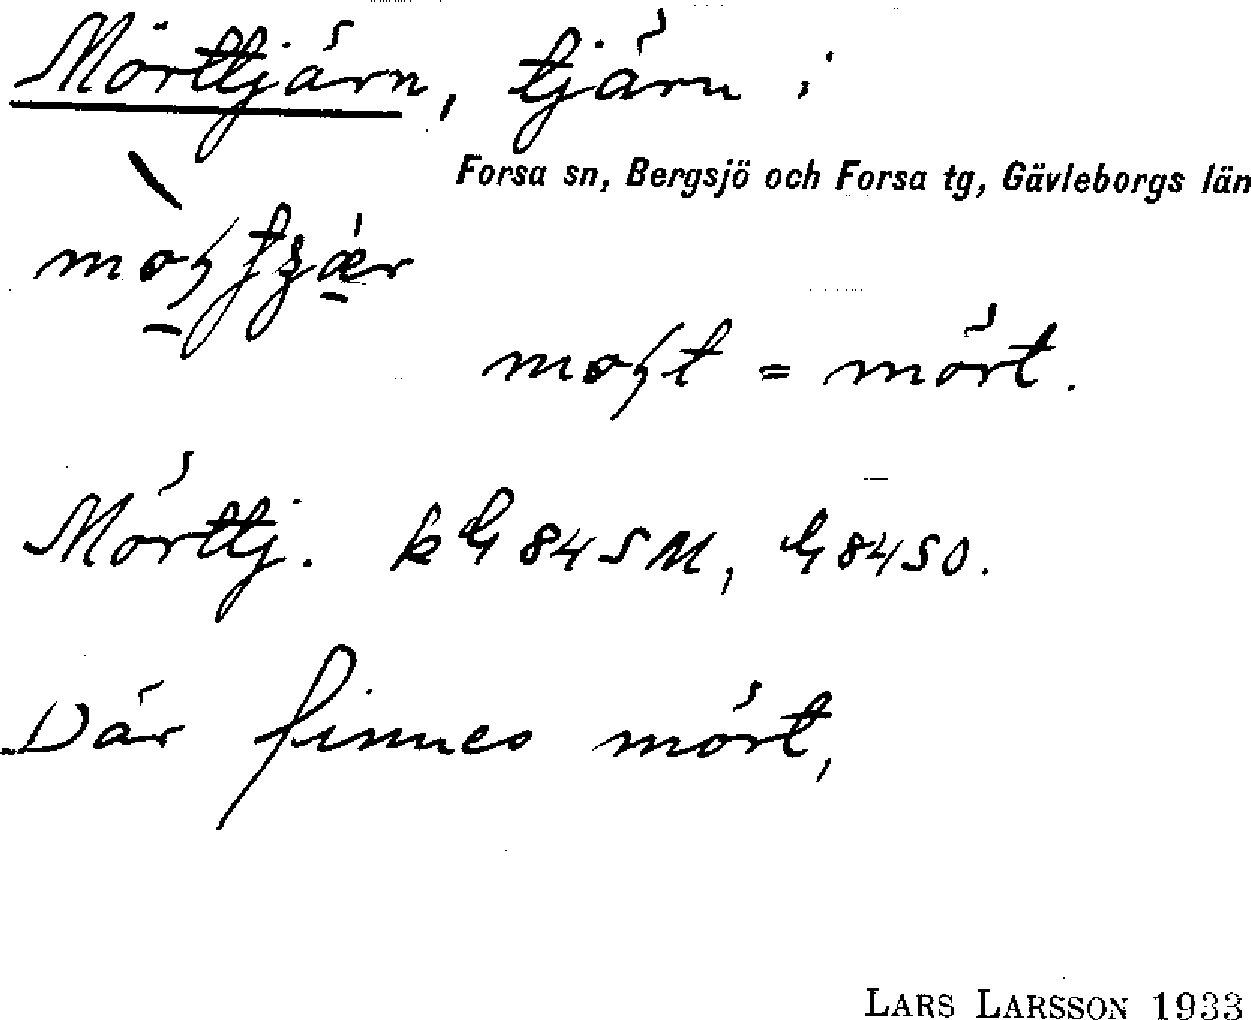 Mörttjärn, tjärn i
Forsa sn, Bergsjö och Forsa tg, Gävleborgs län
= mört.
Mörttj. 84 SM, 84 SO.
Där finnes mört,
LARS LARSSON 1933